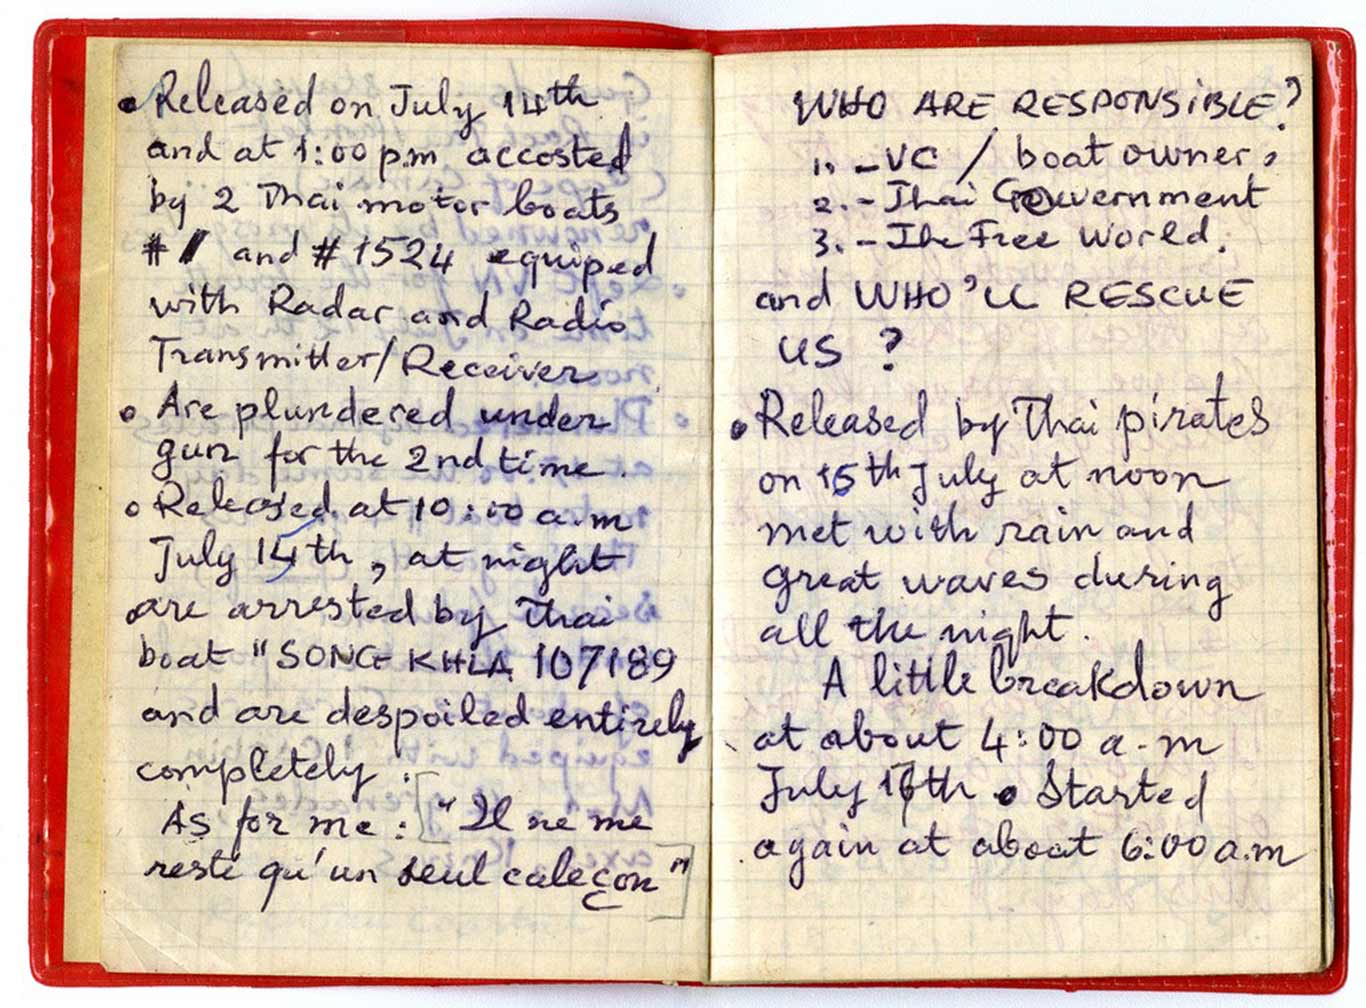 • Released on July 14th
and at 1:00 p.m accosted
by 2 Thai motor boats
#1 and #1524 equiped
with Radar and Radio
Transmitter/Receiver
• Are plundered under
gun for the 2nd time.
• Released at 10:00 a.m
July 15th, at night
are arrested by Thai
boat "SONG KHLA 107189
and are despoiled entirely
completely.
As for me: ["Il ne me
reste qu'un seul caleçon"]
WHO ARE RESPONSiBLE?
1. - VC / boat owner,
2. - Thai Government
3. - The Free World.
and WHO'LL RESCUE
US ?
• Released by Thai pirates
on 15th July at noon
met with rain and
great waves during
all the night.
A little breakdown
at about 4:00 a.m
July 16th • Started
again at about 6:00 a.m